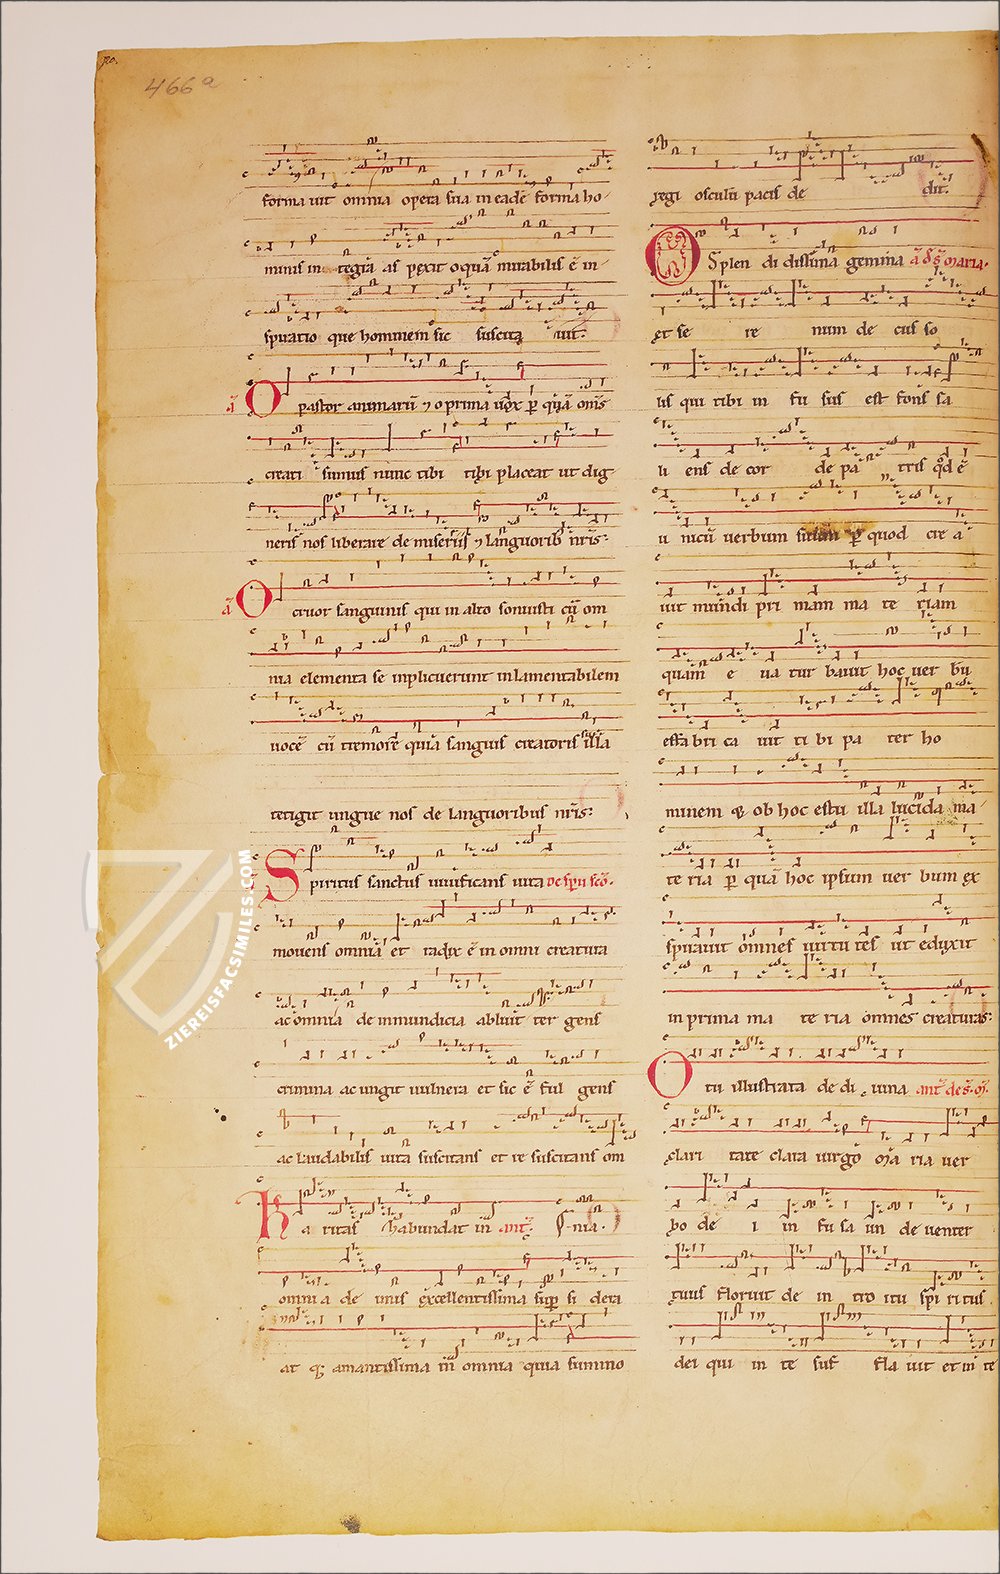 70.
466a
forma uit omnia opera sua in eadē forma ho-
minis in tegrā as pexit o quā mirabilis ē in-
spiratio que hominem sic suscita uit:
ā O pastor animarū ⁊ o prima uox ꝑ quā om̄s
creati sumus nunc tibi tibi placeat ut dig-
neris nos liberare de miseriis ⁊ languorib nr̄is:
ā O cruor sanguinis qui in alto sonuisti cū om
nia elementa se inplicuerunt in lamentabilem
uocē cū tremore quia sanguis creatoris illa
tetigit ungue nos de languoribus nr̄is:
Spiritus sanctus uiuificans uita de sp̄u scō.
mouens omnia et radix ē in omni creatura
ac omnia de inmundicia abluit ter gens
crimina ac ungit uulnera et sic ē ful gens
ac laudabilis uita suscitans et re suscitans om
Ka ritas habundat in ant̄. nia.
omnia de imis excellentissima sup si dera
at qꝫ amantissima in omnia quia summo
regi osculū pacis de dit.
O Splen di dissima gemma ā d s Maria.
et se re num de cus so
lis qui tibi in fu sus est fons sa
li ens de cor de pa tris qd ē
u nicū uerbum suum ꝑ quod cre a
uit mundi pri mam ma te riam
quam e ua tur bauit hoc uer bū
effa bri ca uit ti bi pa ter ho
minem & ob hoc es tu illa lucida ma-
te ria ꝑ quā hoc ipsum uer bum ex
spirauit omnes uirtu tes ut eduxit
in prima ma te ria omnes creaturas:
O tu illustrata de di uina ant̄ de s. M.
clari tate clara uirgo Ma ria uer
bo de i in fu sa un de uenter
tuus floruit de in tro itu spi ritus
dei qui in te suf fla uit et in te
ZIEREISFACSIMILES.COM